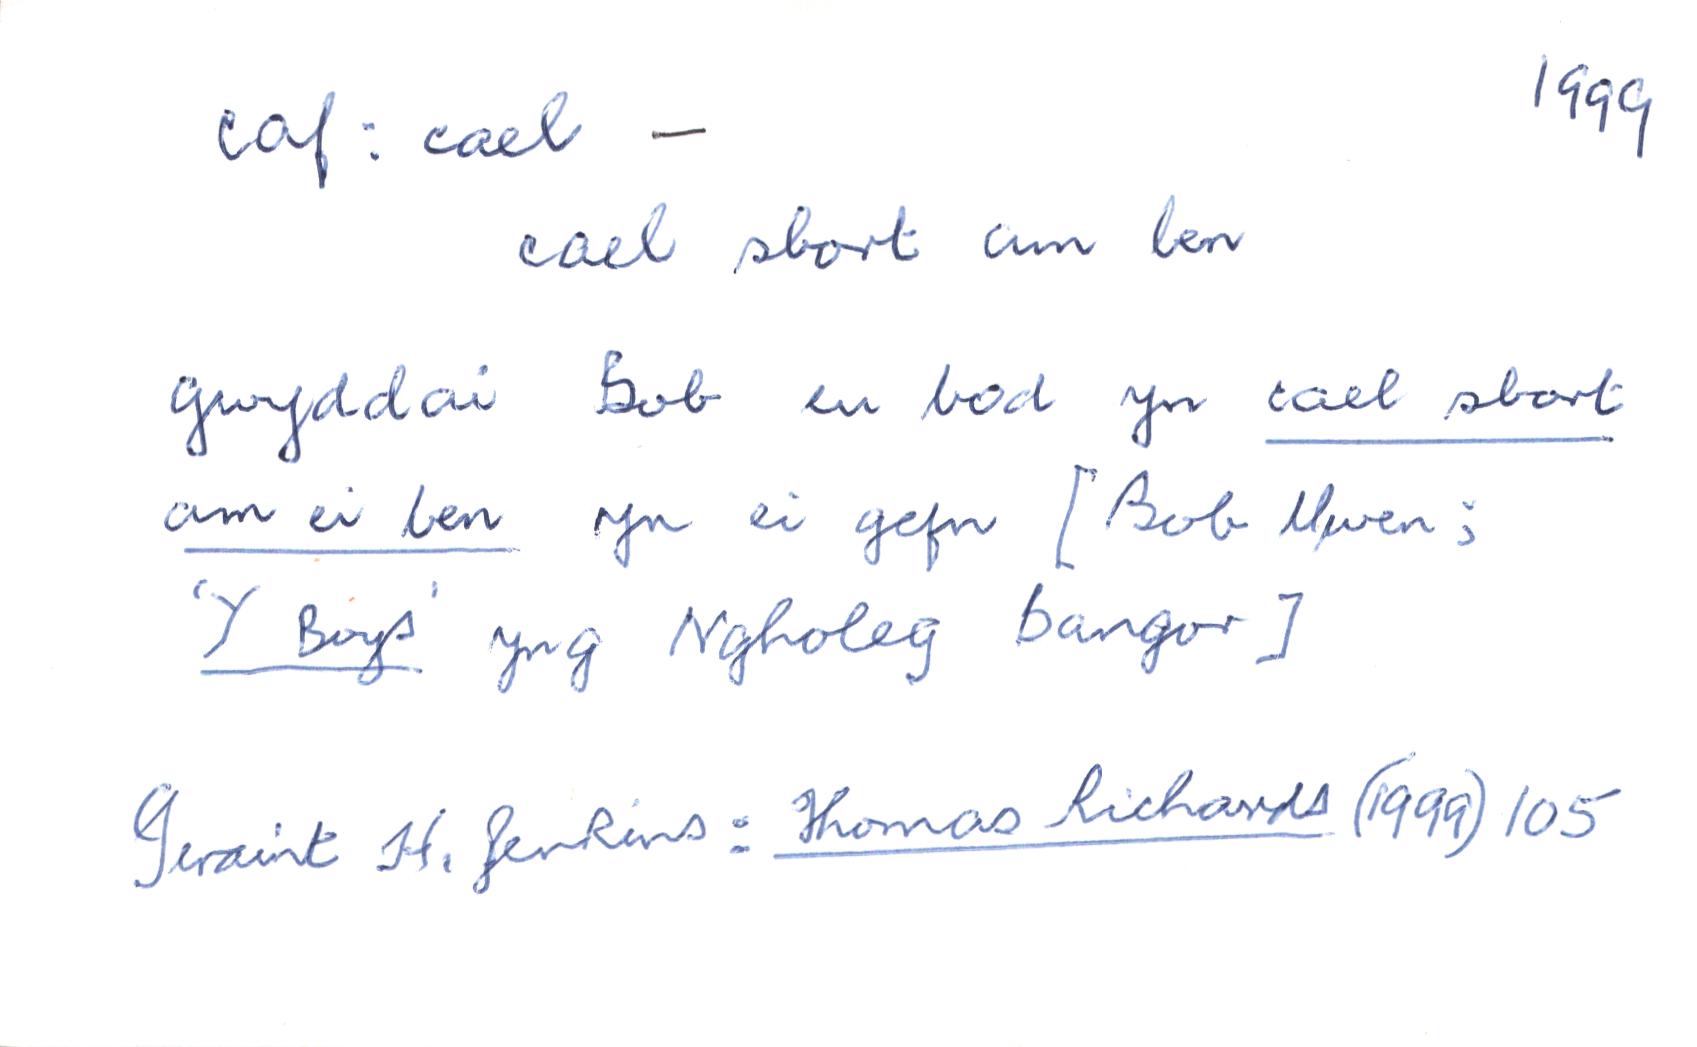 caf: cael — 1999
cael sbort am ben
gwyddai Bob eu bod yn cael sbort
am ei ben yn ei gefn [Bob Owen;
'Y Boys' yng Ngholeg Bangor]
Geraint H. Jenkins: Thomas Richards (1999) 105